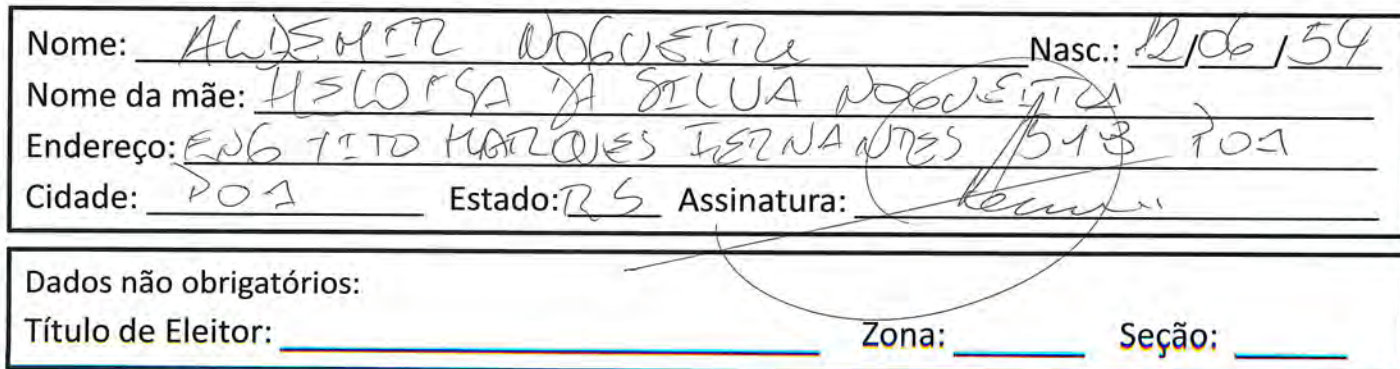 Nome: ALDEMIR NOGUEIRA Nasc.: 12/06/54
Nome da mãe: HELOISA DA SILVA NOGUEIRA
Endereço: ENG TITO MARQUES FERNANDES 513 POA
Cidade: POA Estado: RS Assinatura:
Dados não obrigatórios:
Título de Eleitor: Zona: Seção: